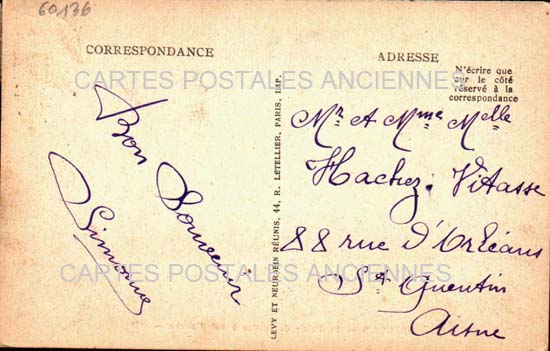 60136
CORRESPONDANCE
ADRESSE
N'écrire que
sur le côté
réservé à la
correspondance
CARTES POSTALES ANCIENNES
Bon Souvenir
Simonne
LEVY ET NEURDEIN RÉUNIS, 44, R. LETELLIER, PARIS, IMP.
Mr et Mme Melle
Hachez-Vitasse
88 rue d'Orléans
St Quentin
Aisne
CARTES POSTALES ANCIENNES